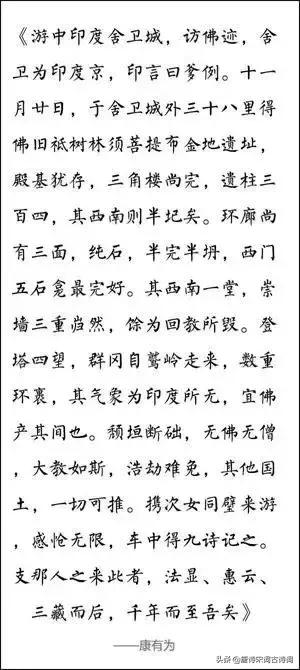 《游中印度舍卫城，访佛迹，舍
卫为印度京，印言曰爹例。十一
月廿日，于舍卫城外三十八里得
佛旧祗树林须菩提布金地遗址，
殿基犹存，三角楼尚完，遗柱三
百四，其西南则半圮矣。环廊尚
有三面，纯石，半完半坍，西门
五石龛最完好。其西南一堂，崇
墙三重岿然，馀为回教所毁。登
塔四望，群冈自鹫岭走来，数重
环裹，其气象为印度所无，宜佛
产其间也。颓垣断础，无佛无僧
，大教如斯，浩劫难免，其他国
土，一切可推。携次女同璧来游
，感怆无限，车中得九诗记之。
支那人之来此者，法显、惠云、
三藏而后，千年而至吾矣》
——康有为
头条 @唐诗宋词古诗词